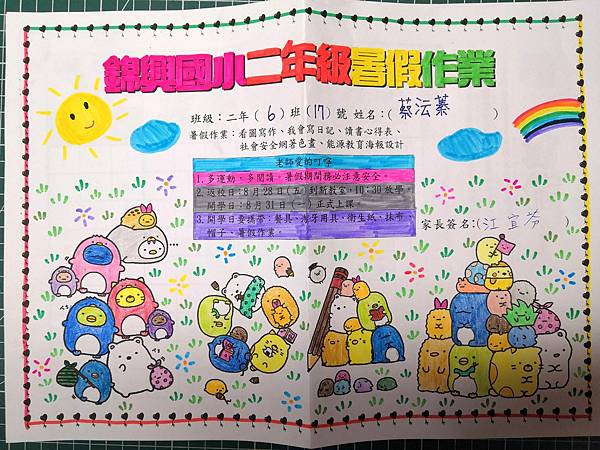 錦興國小二年級暑假作業
班級：二年（6）班（17）號 姓名：（蔡沄蓁）
暑假作業：看圖寫作、我會寫日記、讀書心得長、
社會安全網著色畫、能源教育海報設計
老師愛的叮嚀
1.多運動、多閱讀，暑假期間務必注意安全。
2.返校日：8月28日(五)到新教室，10:30放學。
開學日：8月31日(一)正式上課。
3.開學日要攜帶：餐具、潔牙用具、衛生紙、抹布、
帽子、暑假作業。
家長簽名：（江宜芬）